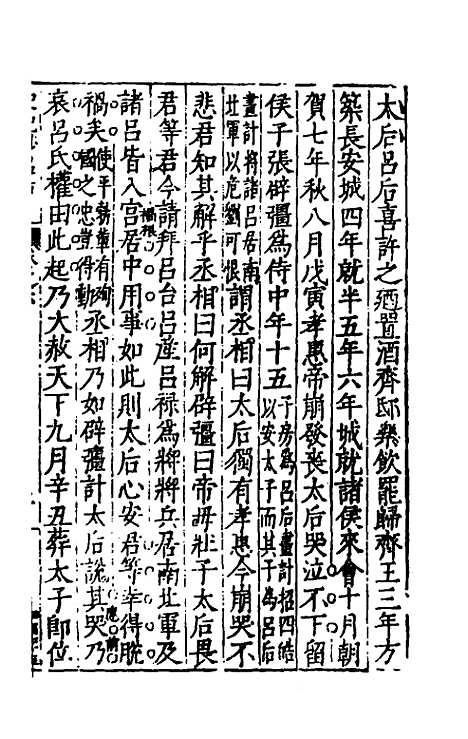 太后呂后喜許之廼置酒齊邸樂飮罷歸齊王三年方
築長安城四年就半五年六年城就諸侯來會十月朝
賀七年秋八月戊寅孝惠帝崩發喪太后哭泣不下留
侯子張辟彊爲侍中年十五子房爲呂后畫計招四皓以安太子而其子爲呂后
畫計將諸呂居南北軍以危劉可恨謂丞相曰太后獨有孝惠今崩哭不
悲君知其解乎丞相曰何解辟彊曰帝毋壯子太后畏
君等君今請拜呂台呂產呂祿爲將將兵居南北軍及
諸呂皆入宫居中用事如此則太后心安君等幸得脫
禍矣使平勃輩有殉國之忠豈得動丞相乃如辟彊計太后說其哭乃
哀呂氏權由此起乃大赦天下九月辛丑葬太子卽位
禍根
應前